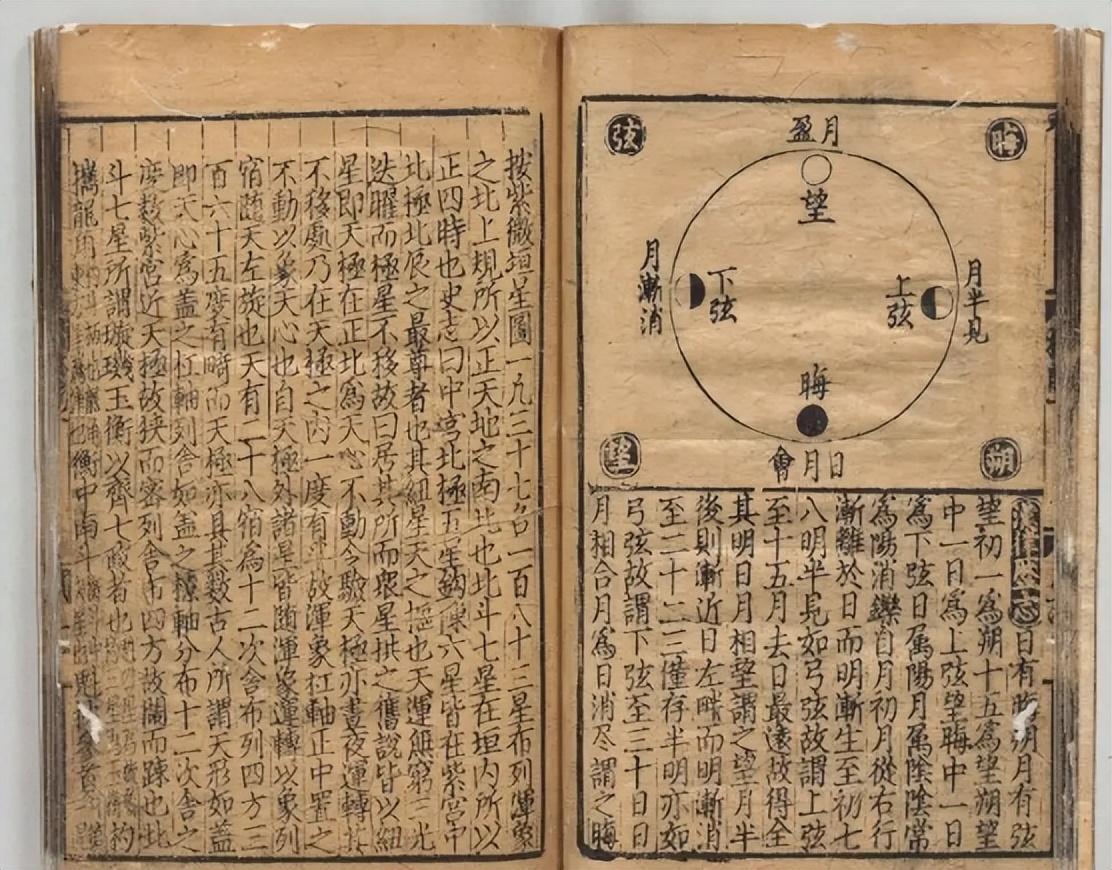 晦
月盈
弦
望
月半見
上弦
下弦
月漸消
晦
朔
日月會
望
漢律曆志日有晦朔月有弦
望初一爲朔十五爲望朔望
中一日爲上弦望晦中一日
爲下弦日属陽月属陰陰常
爲陽消鑠自月初月從右行
漸離於日而明漸生至初七
八明半見如弓弦故謂上弦
至十五月去日最遠故得全
其明日月相望謂之望月半
後則漸近日左畔而明漸消
至二十二三僅存半明亦如
弓弦故謂下弦至三十日日
月相合月爲日消尽謂之晦
按紫微垣星圖一凡三十七名一百八十三星布列渾象
之北上規所以正天地之南北也北斗七星在垣内所以
正四時也史志曰中宮北極五星鈎陳六星皆在紫宮中
北極北辰之最尊者也其紐星天之樞也天運無窮三光
迭曜而極星不移故曰居其所而衆星拱之舊說皆以紐
星即天極在正北爲天心不動今驗天極亦晝夜運轉其
不移處乃在天極之内一度有半故渾象杠軸正中置之
不動以象天心也自天極外諸星皆随渾象運轉以象列
宿随天左旋也天有二十八宿爲十二次舍布列四方三
百六十五度有畸而天極亦具其数古人所謂天形如蓋
即天心爲蓋之杠軸列舍如蓋之橑軸分布十二次舍之
度数紫宮近天極故狹而密列舍布四方故闊而踈也北
斗七星所謂璇璣玉衡以齊七政者也
攜龍角衡中南斗魁枕參首杓